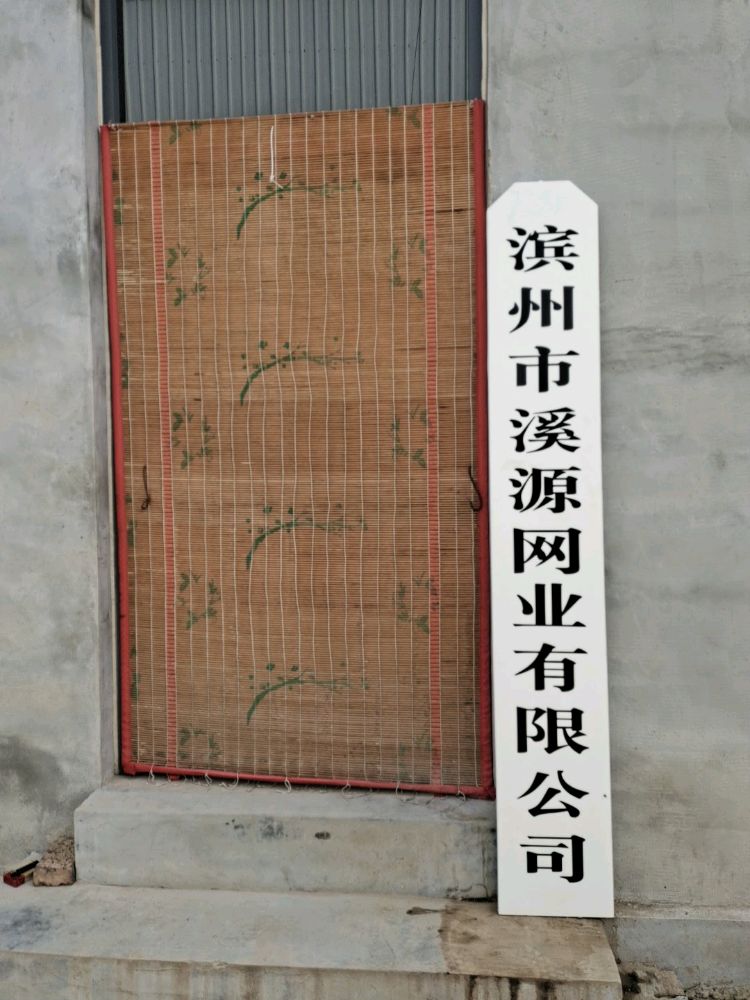 滨州市溪源网业有限公司